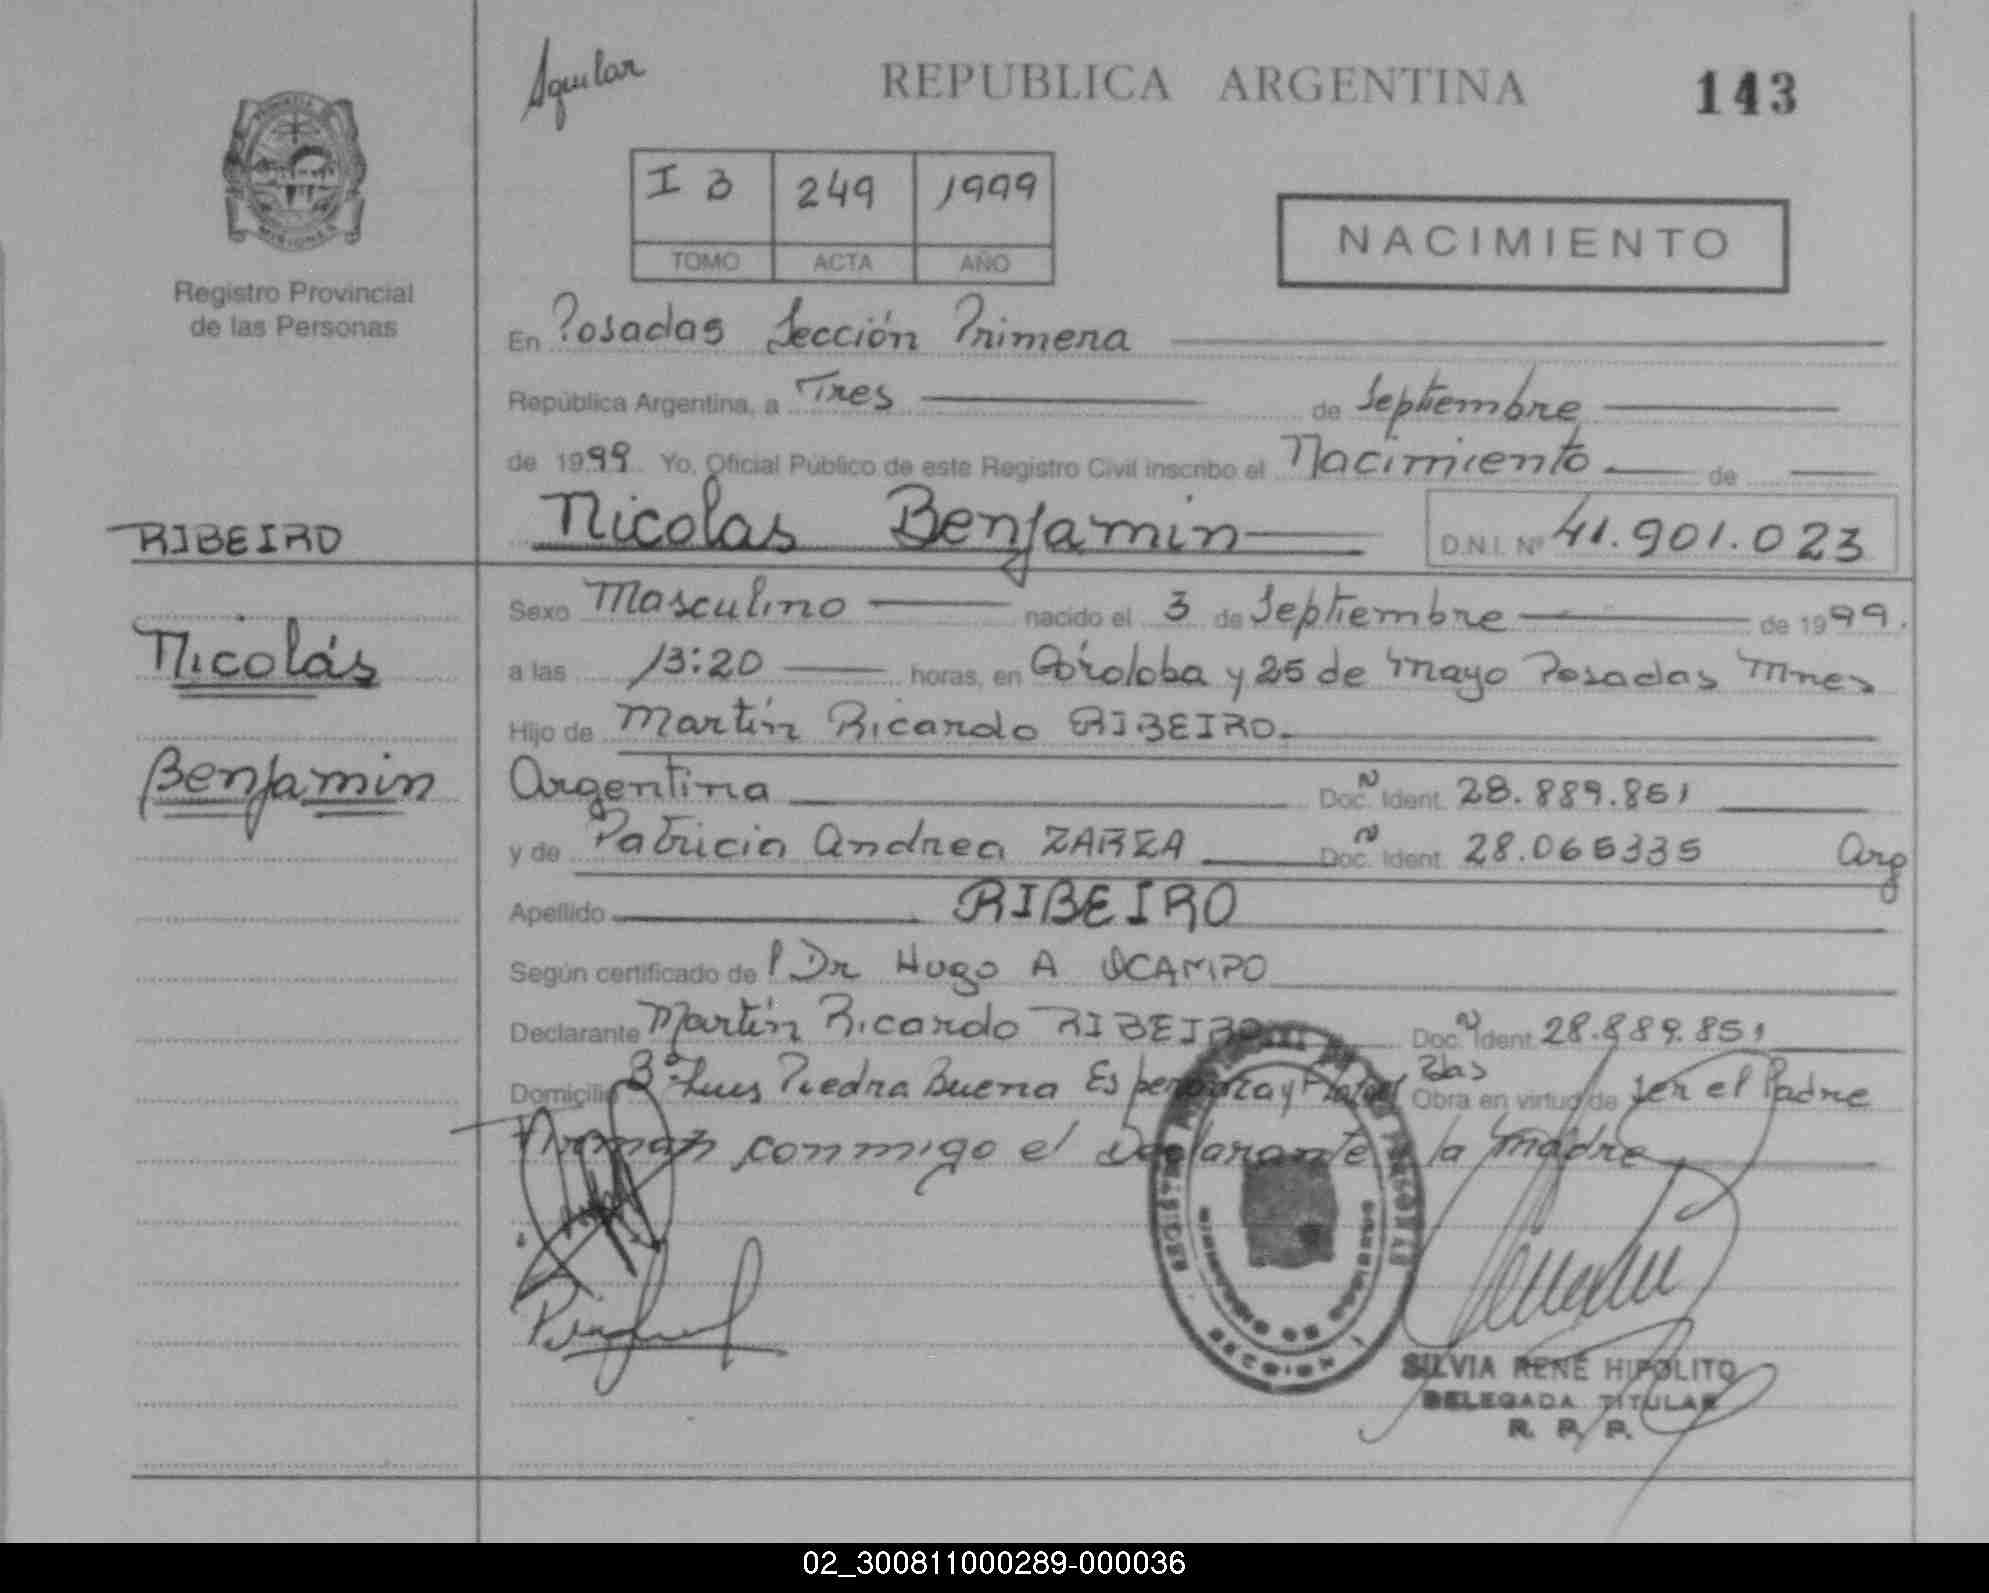 Aguilar
REPUBLICA ARGENTINA
143
I 3 249 1999
TOMO ACTA AÑO
NACIMIENTO
MISIONES
Registro Provincial
de las Personas
En Posadas Sección Primera
República Argentina, a Tres de Septiembre
de 1999 Yo, Oficial Público de este Registro Civil inscribo el Nacimiento de
RIBEIRO
Nicolás
Benjamin
Nicolas Benjamin D.N.I. Nº 41.901.023
Sexo Masculino nacido el 3 de Septiembre de 1999.
a las 13:20 horas, en Córdoba y 25 de Mayo Posadas Mnes
Hijo de Martín Ricardo RIBEIRO.
Argentina Doc. Ident. 28.889.851
y de Patricia Andrea ZARZA Doc. Ident. 28.065335 Arg
Apellido RIBEIRO
Según certificado de Dr Hugo A OCAMPO
Declarante Martín Ricardo RIBEIRO Doc. Ident. 28.889.851
Domicilio Bº Luis Piedra Buena Esperanza y Pdas Obra en virtud de ser el Padre
Firman conmigo el Declarante la Madre
SECCION 1
SILVIA RENE HIPOLITO
DELEGADA TITULAR
R. P. P.
02_300811000289-000036